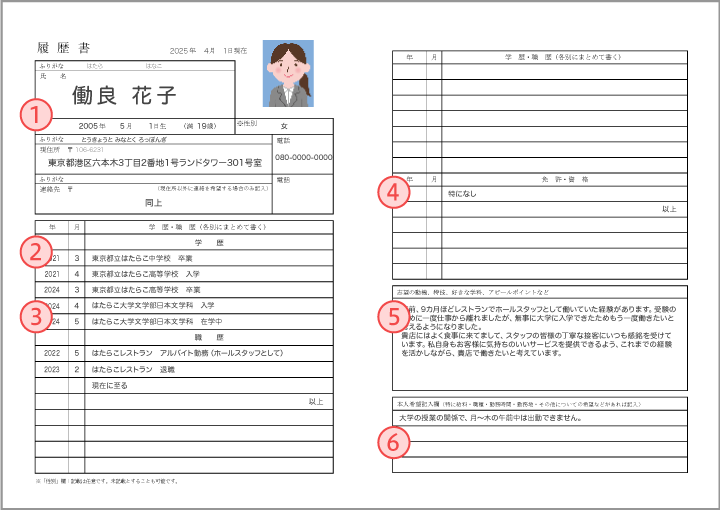 履歴書
2025年 4月 1日現在
ふりがな はたら はなこ
氏 名
働良 花子
1
2005年 5月 1日生 (満 19歳)
※性別 女
ふりがな とうきょうと みなとく ろっぽんぎ
現住所 〒106-6231
東京都港区六本木3丁目2番地1号ランドタワー301号室
電話
080-0000-0000
ふりがな
連絡先 〒 (現住所以外に連絡を希望する場合のみ記入)
同上
電話
年 月 学 歴・職 歴(各別にまとめて書く)
学 歴
2
021 3 東京都立はたらこ中学校 卒業
2021 4 東京都立はたらこ高等学校 入学
2024 3 東京都立はたらこ高等学校 卒業
3
024 4 はたらこ大学文学部日本文学科 入学
24 5 はたらこ大学文学部日本文学科 在学中
職 歴
2022 5 はたらこレストラン アルバイト勤務(ホールスタッフとして)
2023 2 はたらこレストラン 退職
現在に至る
以上
※「性別」欄:記載は任意です。未記載とすることも可能です。
年 月 学 歴・職 歴(各別にまとめて書く)
4
年 月 免 許・資 格
特になし
以上
志望の動機、特技、好きな学科、アピールポイントなど
5
前、9カ月ほどレストランでホールスタッフとして働いていた経験があります。受験の
めに一度仕事から離れましたが、無事に大学に入学できたためもう一度働きたいと
えるようになりました。
貴店にはよく食事に来てまして、スタッフの皆様の丁寧な接客にいつも感銘を受けて
います。私自身もお客様に気持ちのいいサービスを提供できるよう、これまでの経験
を活かしながら、貴店で働きたいと考えています。
本人希望記入欄(特に給料・職種・勤務時間・勤務地・その他についての希望などがあれば記入)
大学の授業の関係で、月〜木の午前中は出勤できません。
6